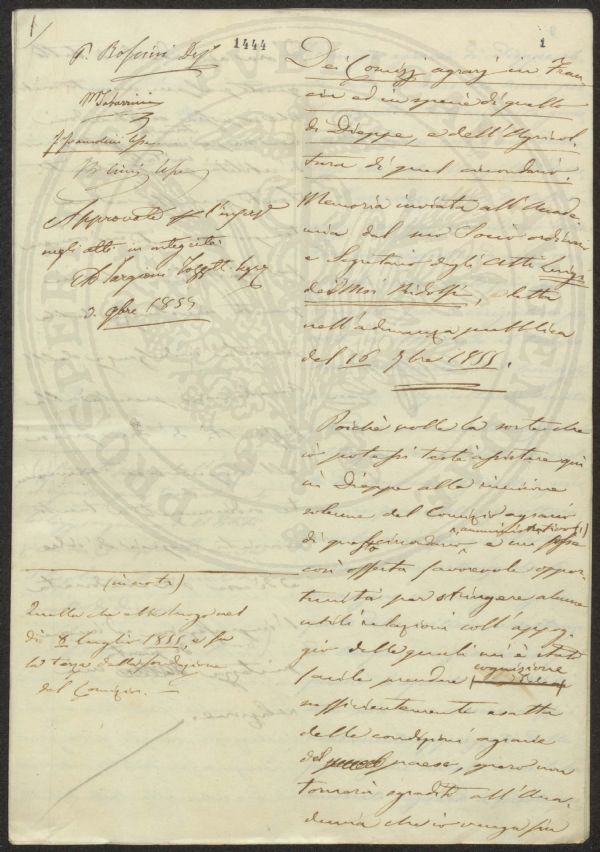 1444
1
1
P. Rosini Dep.
M Tabarrini
Approvata per l'ingresso
negli atti in integrità
A Targioni Tozzetti Segr.
9bre 1855
Dei Comizj agrarj in Fran-
cia ed in specie di quello
di Dieppe, e dell'Agricol-
tura di quel circondario.
Memoria inviata all'Accade-
mia dal suo Socio ordinari
e Segretario degli Atti Luigi
de' Mssi Ridolfi, e letta
nell'adunanza pubblica
del 16 7bre 1855.
Poichè volle la sorte che
io potessi testè assistere qui
in Dieppe alla riunione
solenne del Comizio agrario
di questo circondario amministrativo (1)
e mi fosse
così offerta favorevole oppor-
tunità per stringere alcune
utili relazioni coll'appog-
gio delle quali mi è stato
facile prendere cognizione
sufficientemente esatta
delle condizioni agrarie
del paese, spero non
tornerà sgradito all'Acca-
demia che io venga fin
(in nota)
Quella che ebbe luogo nel
dì 8 Luglio 1855, e fu
la terza dalla fondazione
del Comizio.
PROSPER